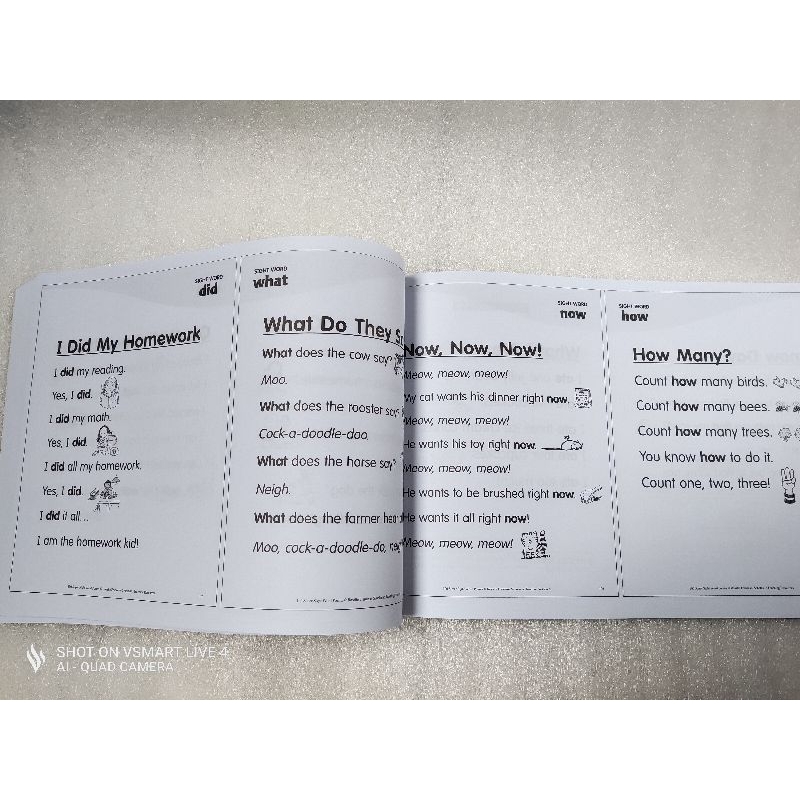 SIGHT WORD
did
I Did My Homework
I did my reading.
Yes, I did.
I did my math.
Yes, I did.
I did all my homework.
Yes, I did.
I did it all...
I am the homework kid!
SIGHT WORD
what
What Do They
What does the cow say?
Moo.
What does the rooster say?
Cock-a-doodle-doo.
What does the horse say?
Neigh.
What does the farmer
Moo, cock-a-doodle-do,
SIGHT WORD
now
Now, Now, Now!
Meow, meow, meow!
My cat wants his dinner right now.
Meow, meow, meow!
He wants his toy right now.
Meow, meow, meow!
He wants to be brushed right now.
He wants it all right now!
Meow, meow, meow!
SIGHT WORD
how
How Many?
Count how many birds.
Count how many bees.
Count how many trees.
You know how to do it.
Count one, two, three!
SHOT ON VSMART LIVE 4
AI - QUAD CAMERA